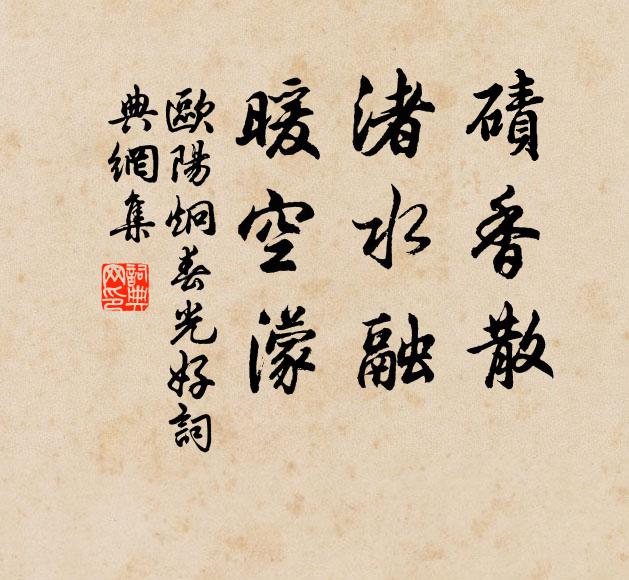 磧香散
渚水融
暖空濛
歐陽炯春光好詞
典網集
詞典
网印